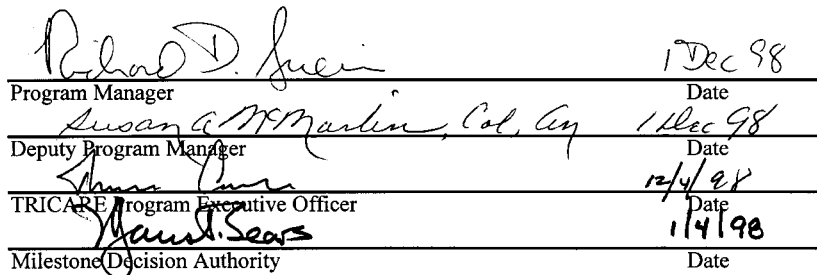 Richard D. 1 Dec 98
Program Manager Date
Susan A McMartin, Col, 1 Dec 98
Deputy Program Manager Date
12/4/98
TRICARE Program Executive Officer Date
Sears 1/4/98
Milestone Decision Authority Date